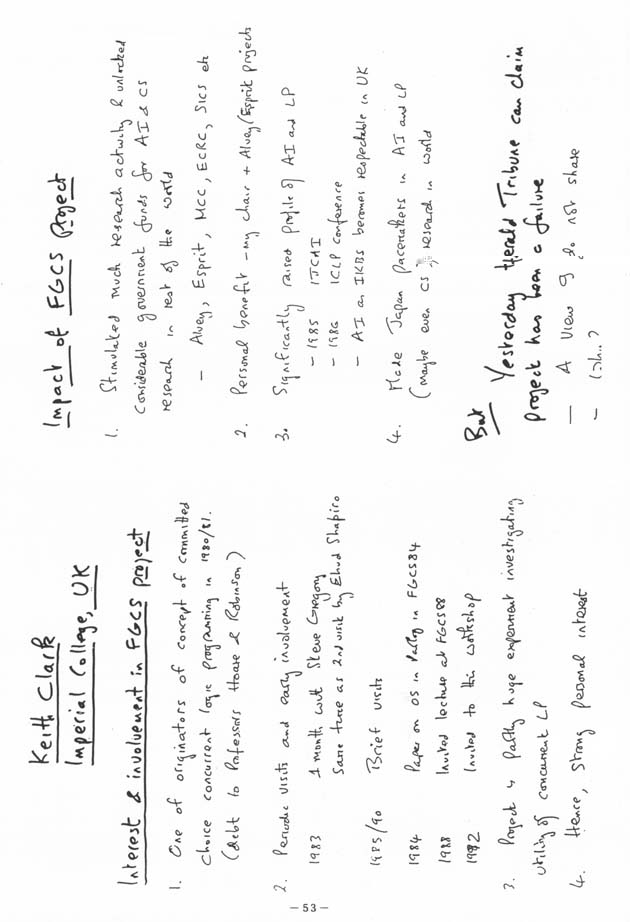 Keith Clark
Imperial College, UK
Interest & involvement in FGCS project
1. One of originators of concept of committed
choice concurrent logic programming in 1980/81.
(debt to Professors Hoare & Robinson)
2. Periodic visits and early involvement
1983 1 month with Steve Gregory
Same time as 2nd visit by Ehud Shapiro
1985/90 Brief visits
1984 Paper on OS in Parlog in FGCS84
1988 Invited lecture at FGCS88
1992 Invited to this workshop
3. Project is partly huge experiment investigating
utility of concurrent LP
4. Hence, strong personal interest
Impact of FGCS project
1. Stimulated much research activity & unlocked
considerable government funds for AI & CS
research in rest of the world
- Alvey, Esprit, MCC, ECRC, SICS etc
2. Personal benefit - my chair + Alvey/Esprit projects
3. Significantly raised profile of AI and LP
- 1985 IJCAI
- 1986 ICLP conference
- AI as IKBS becomes respectable in UK
4. Made Japan pacemakers in AI and LP
(maybe even CS) research in world
But Yesterday Herald Tribune can claim
project has been a failure
- A view I do not share
- Why?
- 53 -